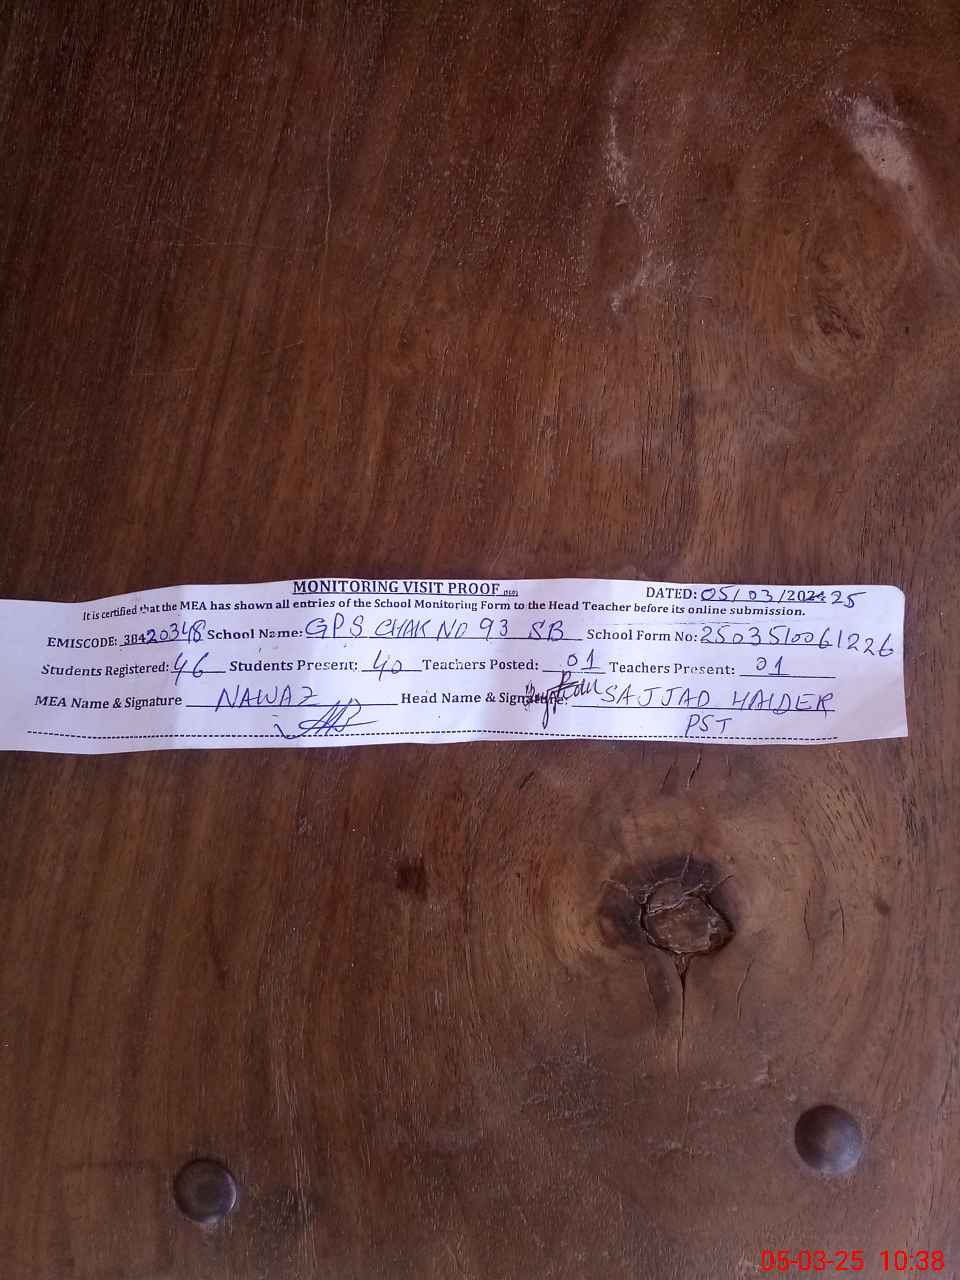 MONITORING VISIT PROOF
DATED: 05/03/202425
It is certified that the MEA has shown all entries of the School Monitoring Form to the Head Teacher before its online submission.
EMISCODE: 38420348 School Name: GPS CHAK NO 93 SB School Form No: 2503510061226
Students Registered: 46 Students Present: 40 Teachers Posted: 01 Teachers Present: 01
MEA Name & Signature NAWAZ Head Name & Signature: SAJJAD HAIDER
PST
05-03-25 10:38